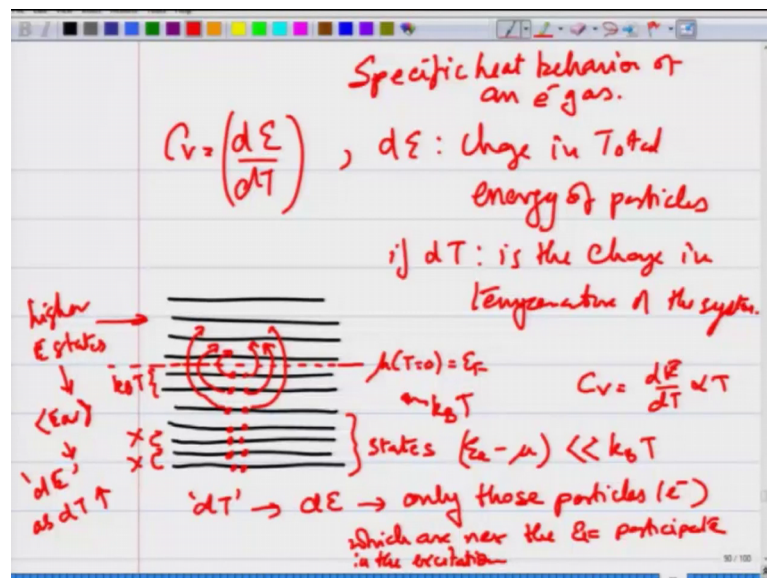 Specific heat behavior of
an e⁻ gas.
Cv = (dƐ/dT) , dƐ : Change in Total
energy of particles
if dT : is the Change in
temperature of the system.
higher
Ɛ states
kBT {
μ(T=0) = ƐF
~ kBT
Cv = dE/dT ∝ T
↓
↓
'dƐ'
as dT ↑
X {
X {
} states (Ɛk - μ) << kBT
'dT' → dƐ → only those particles (e⁻)
which are near the ƐF participate
in the excitation
90 / 100